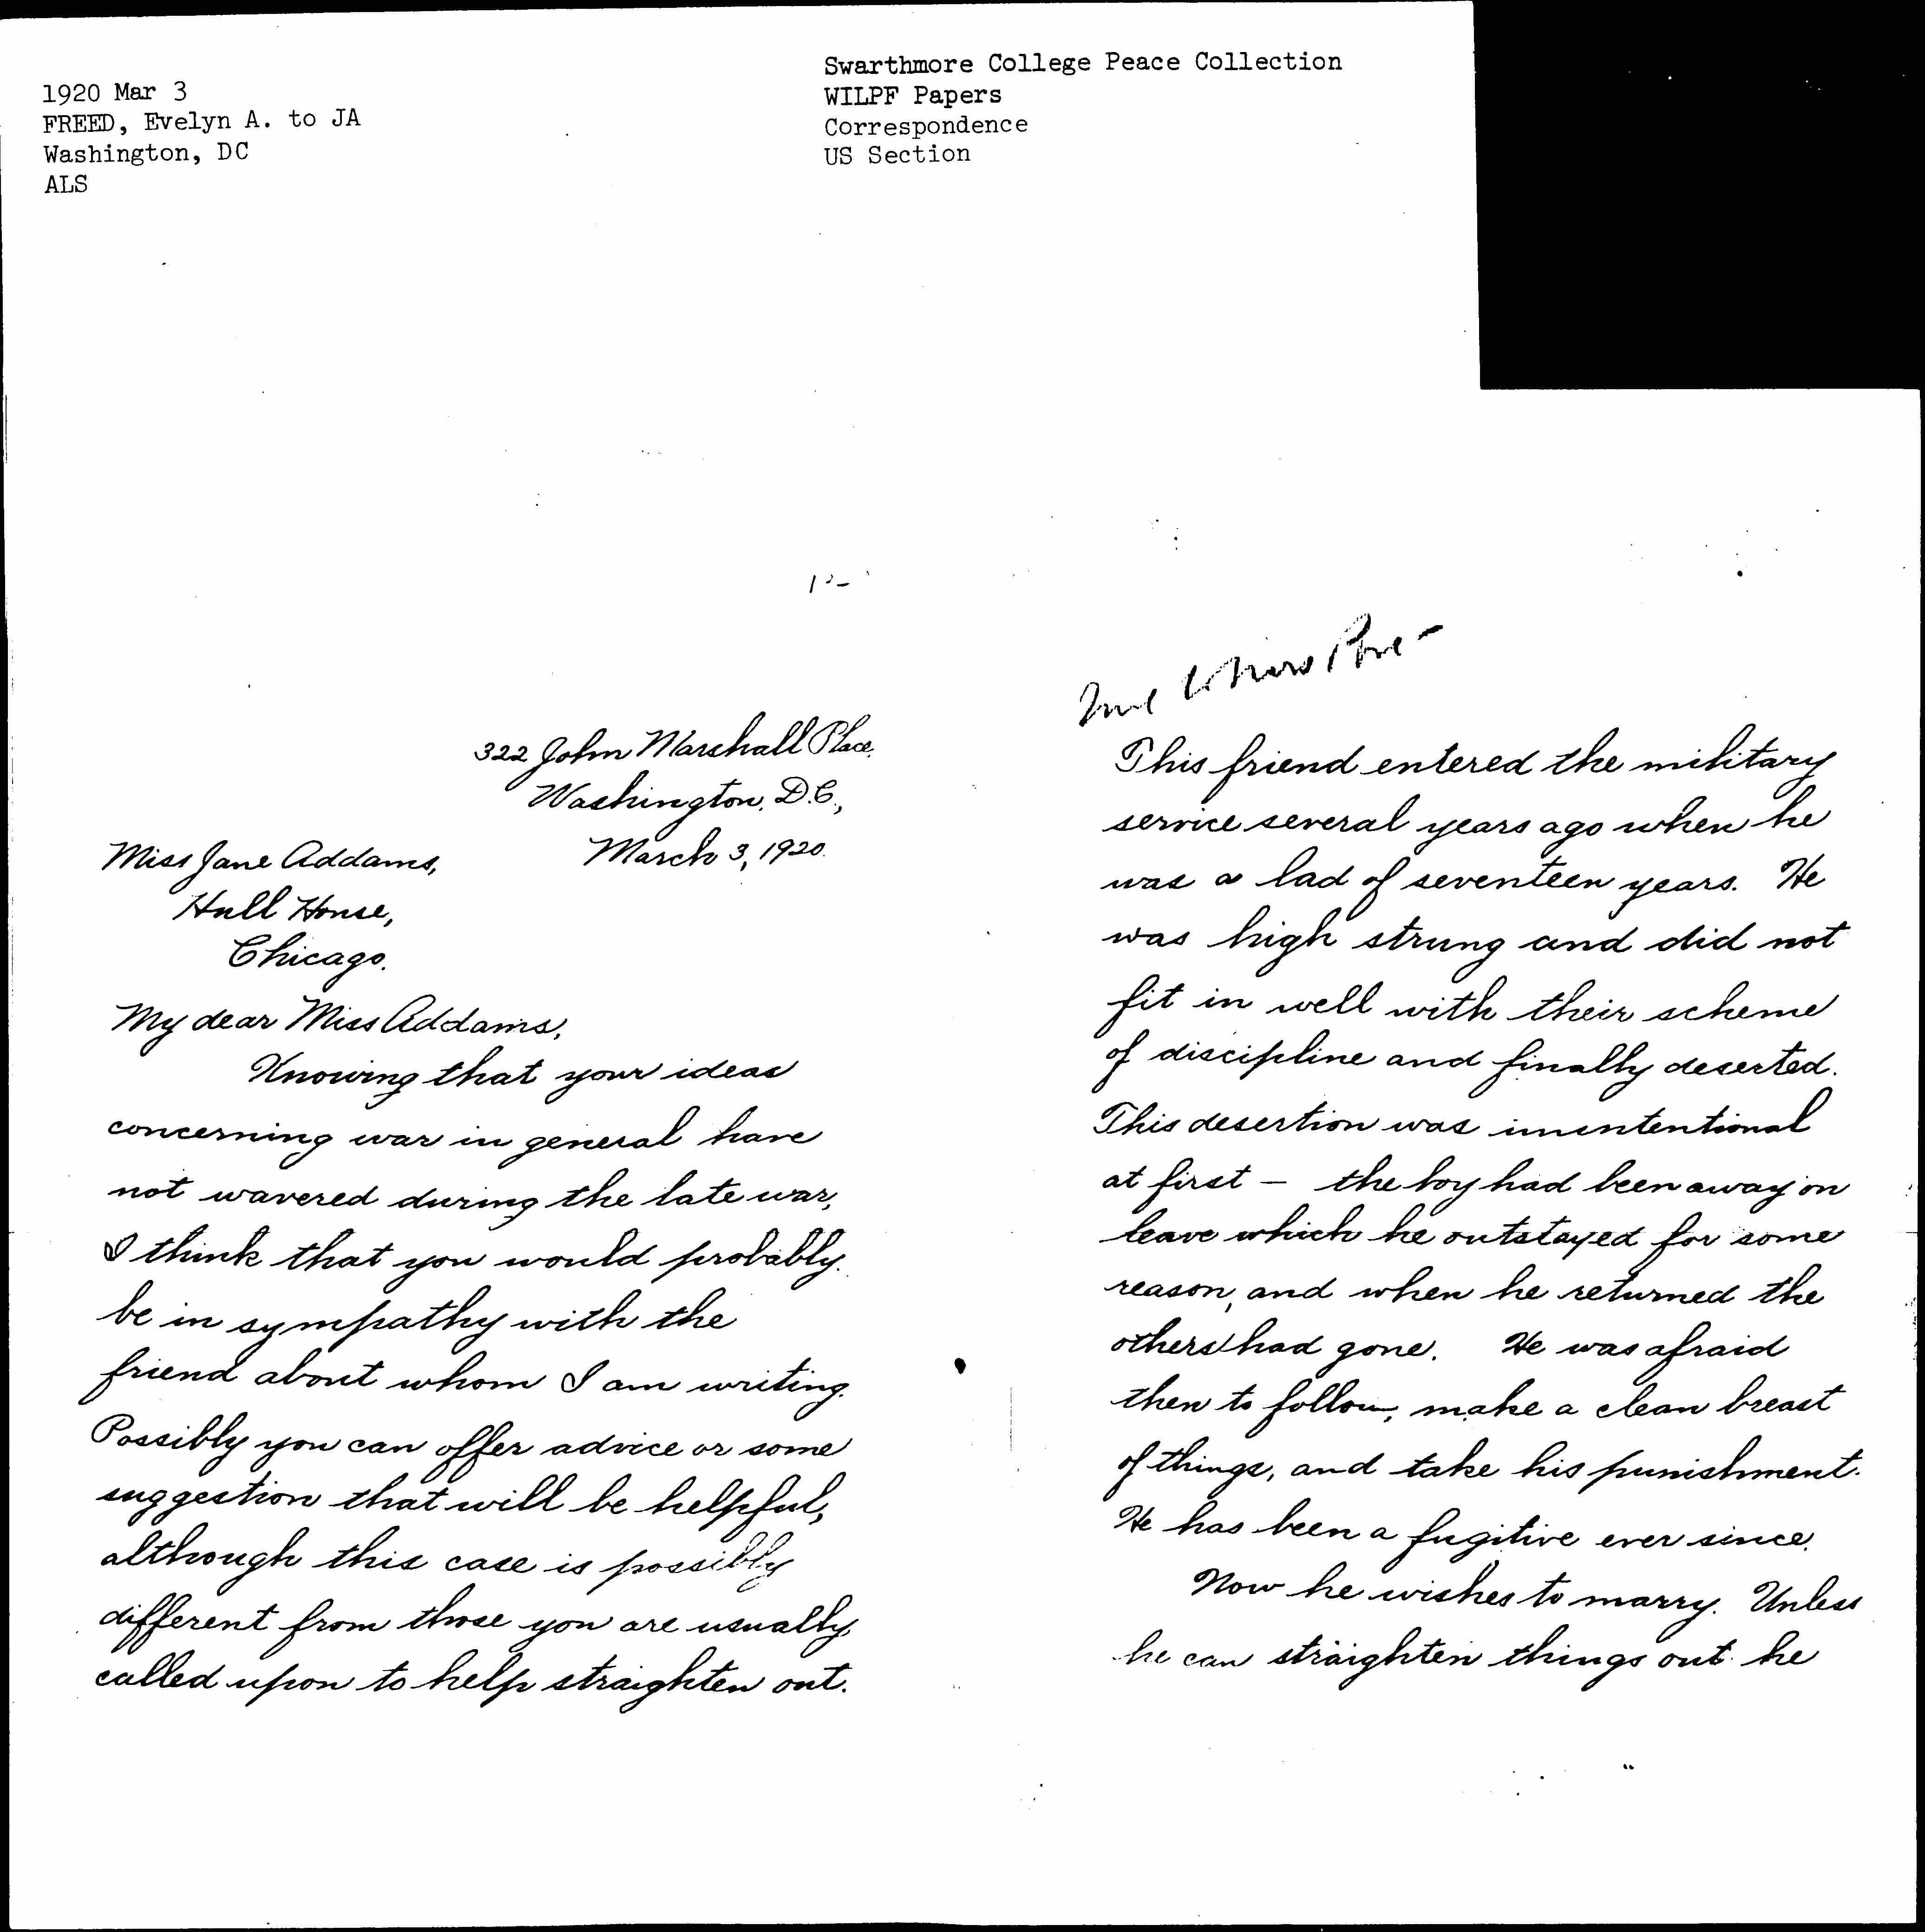 1920 Mar 3
FREED, Evelyn A. to JA
Washington, DC
ALS
Swarthmore College Peace Collection
WILPF Papers
Correspondence
US Section
322 John Marshall Place.
Washington, D.C.,
March 3, 1920.
Miss Jane Addams,
Hull House,
Chicago.
My dear Miss Addams,
Knowing that your ideas
concerning war in general have
not wavered during the late war,
I think that you would probably
be in sympathy with the
friend about whom I am writing.
Possibly you can offer advice or some
suggestion that will be helpful,
although this case is possibly
different from those you are usually
called upon to help straighten out.
This friend entered the military
service several years ago when he
was a lad of seventeen years. He
was high strung and did not
fit in well with their scheme
of discipline and finally deserted.
This desertion was unintentional
at first — the boy had been away on
leave which he outstayed for some
reason, and when he returned the
others had gone. He was afraid
then to follow, make a clean breast
of things, and take his punishment.
He has been a fugitive ever since.
Now he wishes to marry. Unless
he can straighten things out he